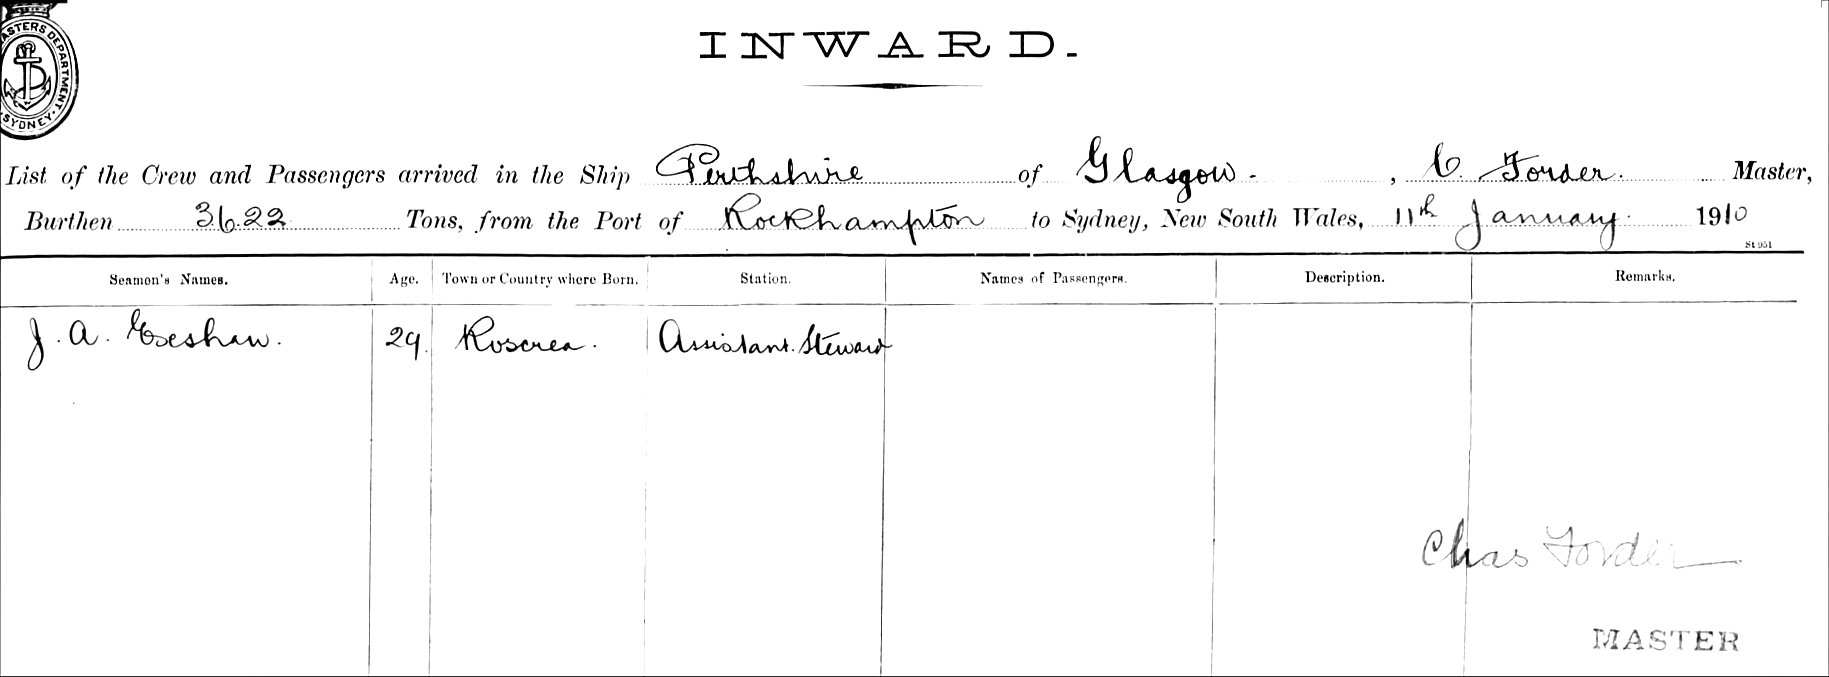 MASTERS DEPARTMENT
SYDNEY
INWARD.
List of the Crew and Passengers arrived in the Ship Perthshire of Glasgow. , C. Forder. Master,
Burthen 3622 Tons, from the Port of Rockhampton to Sydney, New South Wales, 11th January 1910
St 951
Seamen's Names. Age. Town or Country where Born. Station. Names of Passengers. Description. Remarks.
J. A. 29. Roscrea. Assistant Steward
Chas Forder
MASTER